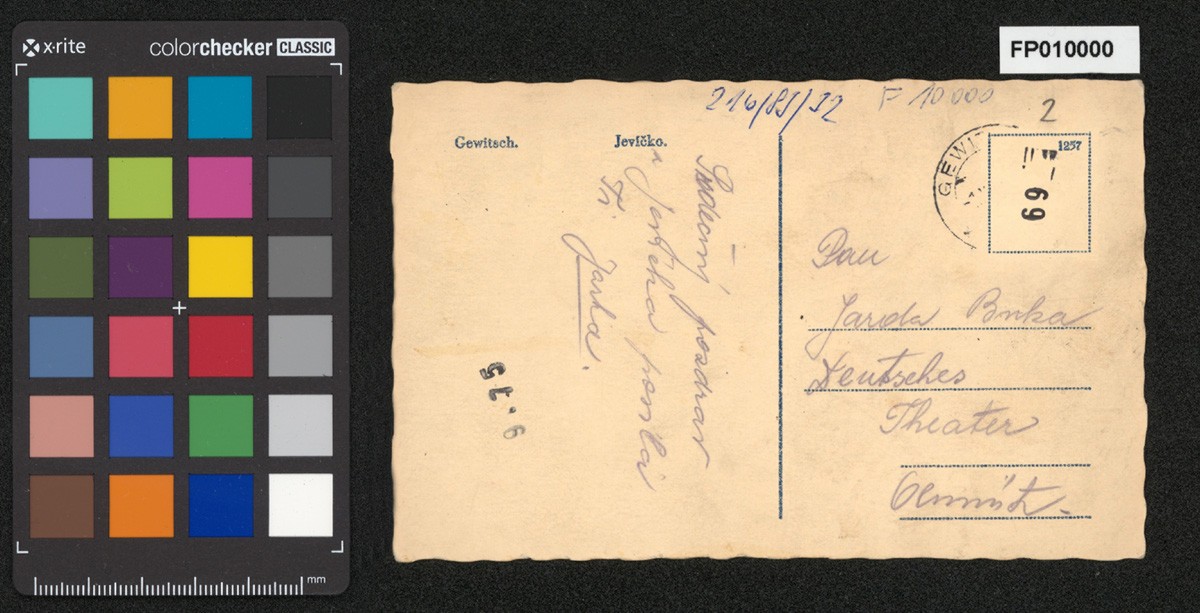 x·rite
colorchecker CLASSIC
mm
FP010000
216/85/32
F 10000
2
Gewitsch.
Jevíčko.
1257
GEWI
69
Srdečný pozdrav
z Jevíčka posílá
Ti Jarka.
9.15
Pan
Jarda Brnka
Deutsches
Theater
Olmütz.